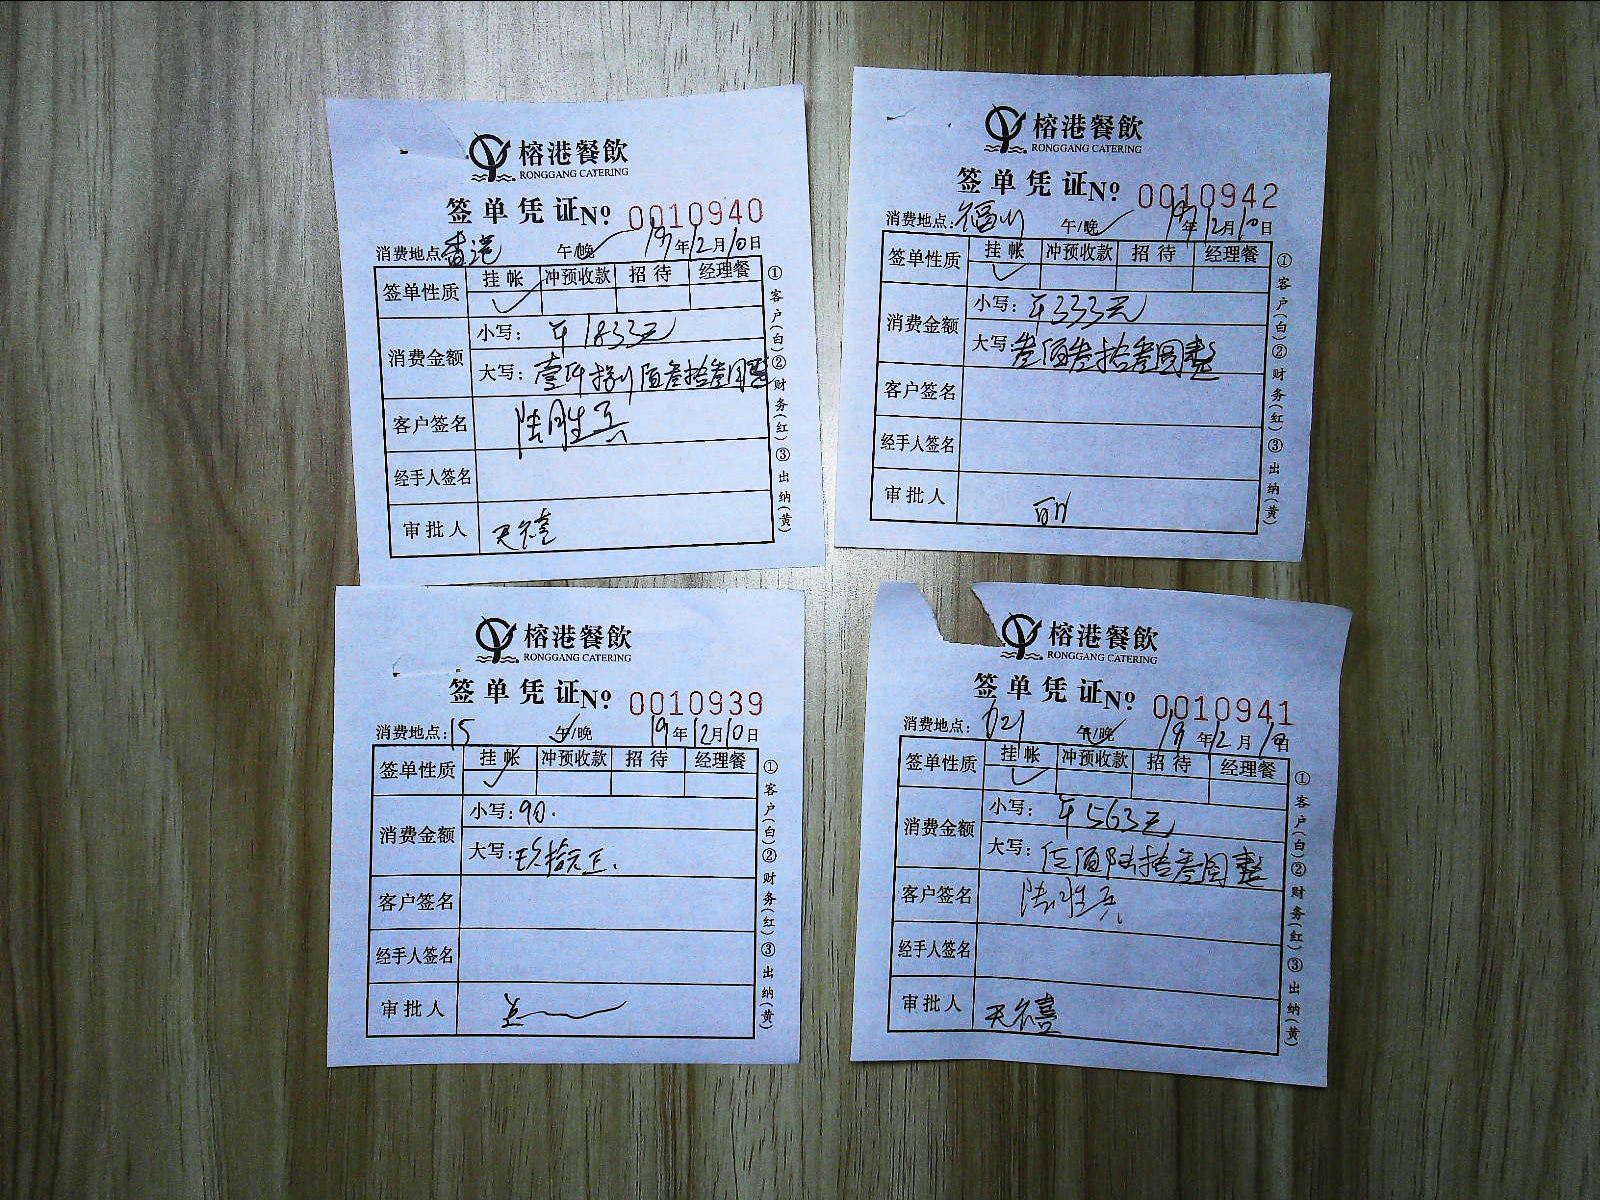 榕港餐飲
RONGGANG CATERING
签单凭证 No 0010940
消费地点: 香港 午/晚 19年12月10日
签单性质 挂帐 冲预收款 招待 经理餐
消费金额
小写: ¥1833元
大写: 壹仟捌佰叁拾叁圆整
客户签名 陆胜兵
经手人签名
审批人 天禧
①客户(白)②财务(红)③出纳(黄)
榕港餐飲
RONGGANG CATERING
签单凭证 No 0010942
消费地点: 福州 午/晚 19年12月10日
签单性质 挂帐 冲预收款 招待 经理餐
消费金额
小写: ¥333元
大写: 叁佰叁拾叁圆整
客户签名
经手人签名
审批人
①客户(白)②财务(红)③出纳(黄)
榕港餐飲
RONGGANG CATERING
签单凭证 No 0010939
消费地点: 15 午/晚 19年12月10日
签单性质 挂帐 冲预收款 招待 经理餐
消费金额
小写: 90.
大写: 玖拾元正.
客户签名
经手人签名
审批人
①客户(白)②财务(红)③出纳(黄)
榕港餐飲
RONGGANG CATERING
签单凭证 No 0010941
消费地点: 021 午/晚 19年12月10日
签单性质 挂帐 冲预收款 招待 经理餐
消费金额
小写: ¥563元
大写: 伍佰陆拾叁圆整
客户签名 陆胜兵
经手人签名
审批人 天禧
①客户(白)②财务(红)③出纳(黄)